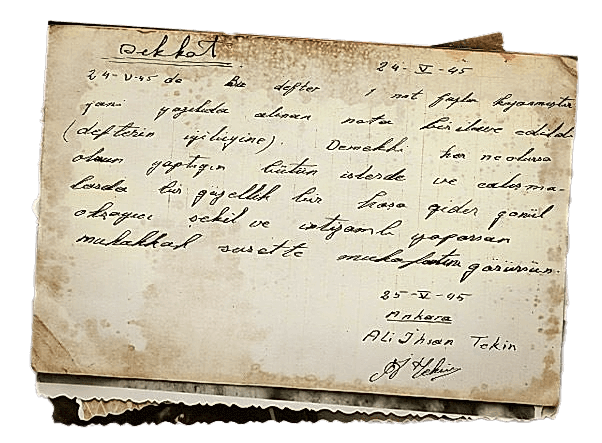 Dikkat.
24-V-45
24-V-45 de Bu defter 1 not fazla kıymıştır
yani yazılıda alınan nota bir ilave edildi
(defterin iyiliğine). Demekki her ne olursa
olsun yaptığın bütün işlerde ve çalışma-
larda bir güzellik bir hoşa gider gönül
okşayıcı şekil ve intizamlı yaparsan
muhakkak surette mukafatını görürsün.
25-V-45
Ankara
Ali İhsan Tekin